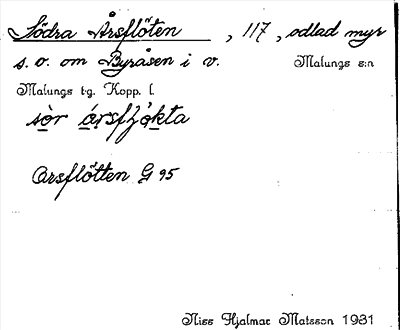 Södra Årsflöten, 117, odlad myr
s. o. om Byråsen i v. Malungs s:n
Malungs t-g. Kopp. l.
sö̀r ársfḷö̀kta
Årsflötten G 95
Nils Hjalmar Matsson 1931